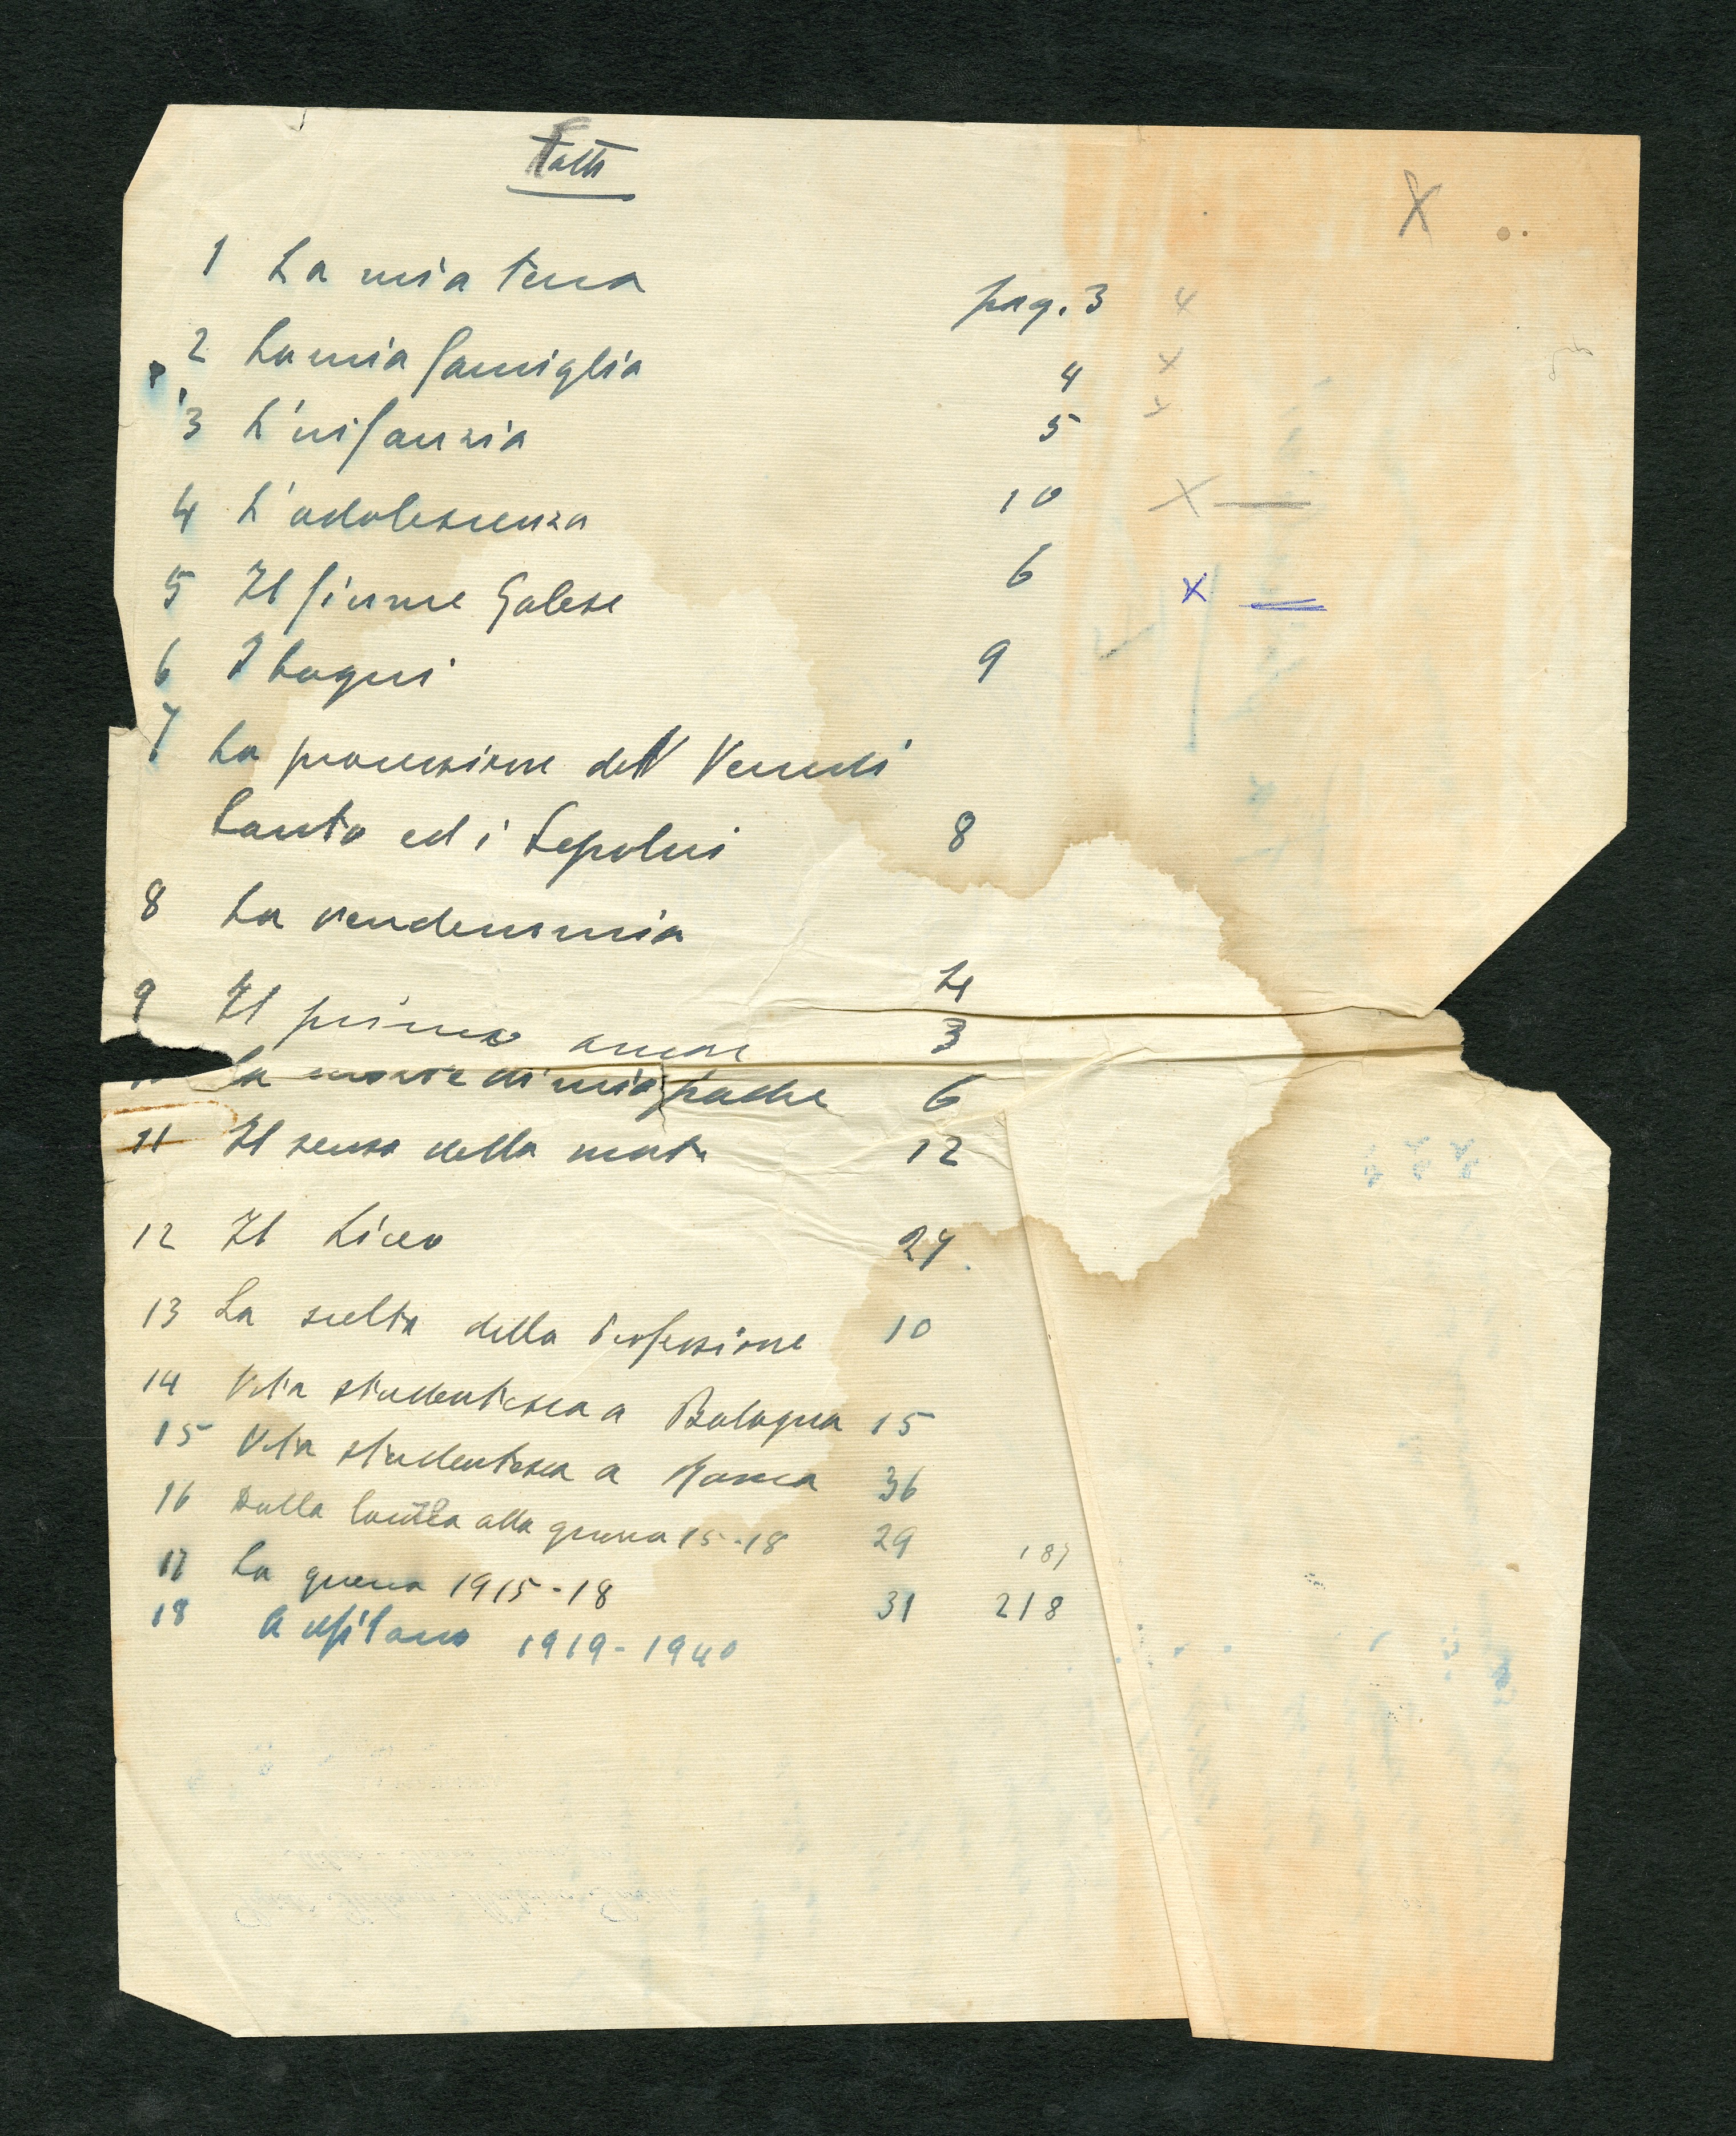 Fatti
1 La mia terra pag. 3
2 La mia famiglia 4
3 L'infanzia 5
4 L'adolescenza 10
5 Il fiume Galese 6
6 I bagni 9
7 La processione del Venerdì
Santo ed i Sepolcri 8
8 La vendemmia 4
9 Il primo amore 3
La morte di mia padre 6
11 Il senso della morte 12
12 Il Liceo 24
13 La scelta della Professione 10
14 Vita studentesca a Bologna 15
15 Vita studentesca a Roma 36
16 Dalla laurea alla guerra 15-18 29 187
17 La guerra 1915-18 31 218
18 A 1919-1940